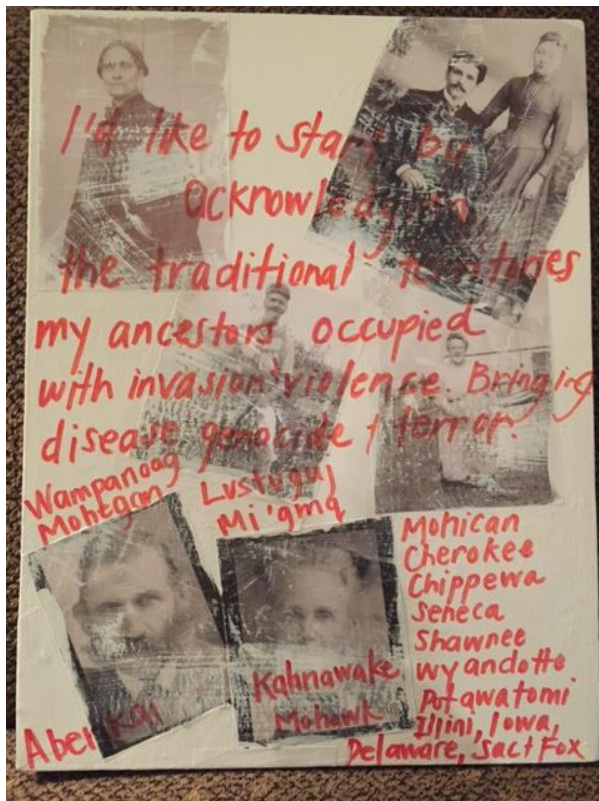 I'd like to start by
acknowledging
the traditional territories
my ancestors occupied
with invasion violence. Bringing
disease genocide + terror.
Wampanoag
Mohegan
Lustuguj
Mi'gmq
Mohican
Cherokee
Chippewa
Seneca
Shawnee
Wyandotte
Potawatomi
Illini, Iowa,
Delaware, Sac + Fox
Kahnawake
Mohawk